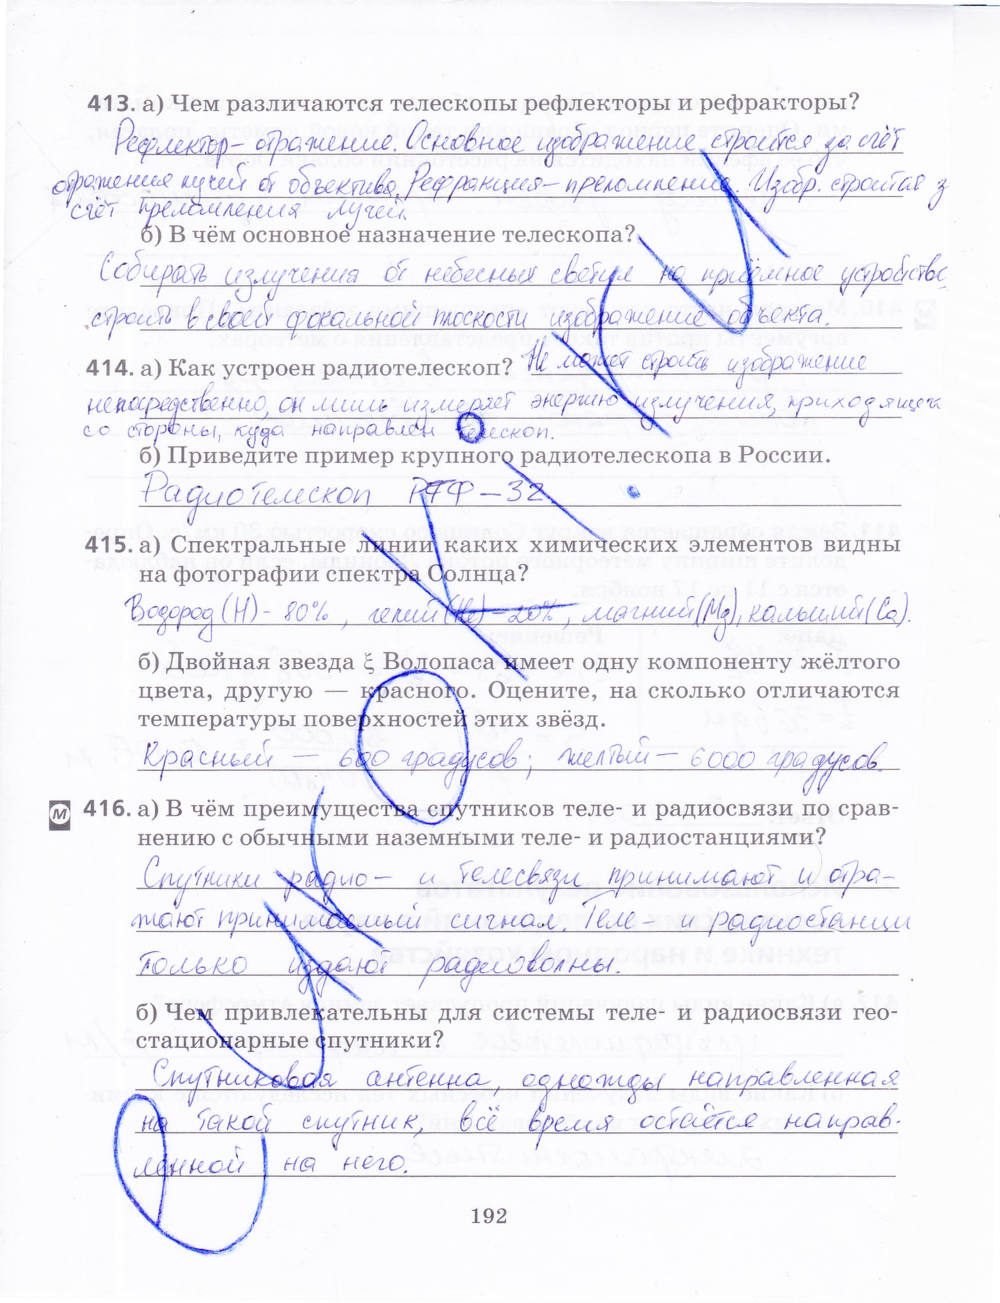 413. а) Чем различаются телескопы рефлекторы и рефракторы?
Рефлектор – отражение. Основное изображение строится за счёт
отражения лучей от объектива. Рефракция – преломление. Изобр. строится з
счёт преломления лучей.
б) В чём основное назначение телескопа?
Собирать излучения от небесных светил на приёмное устройство,
строить в своей фокальной плоскости изображение объекта.
414. а) Как устроен радиотелескоп? Не может строить изображение
непосредственно, он лишь измеряет энергию излучения, приходящего
со стороны, куда направлен телескоп.
б) Приведите пример крупного радиотелескопа в России.
Радиотелескоп РТФ – 32.
415. а) Спектральные линии каких химических элементов видны
на фотографии спектра Солнца?
Водород (H) – 80%, гелий (He) – 20%, магний (Mg), кальций (Ca).
б) Двойная звезда ξ Волопаса имеет одну компоненту жёлтого
цвета, другую — красного. Оцените, на сколько отличаются
температуры поверхностей этих звёзд.
Красный — 600 градусов; желтый – 6000 градусов.
М 416. а) В чём преимущества спутников теле- и радиосвязи по срав-
нению с обычными наземными теле- и радиостанциями?
Спутники радио – и телесвязи принимают и отра-
жают принимаемый сигнал. Теле – и радиостанци
только издают радиоволны.
б) Чем привлекательны для системы теле- и радиосвязи гео-
стационарные спутники?
Спутниковая антенна, однажды направленная
на такой спутник, всё время остаётся направ-
ленной на него.
192